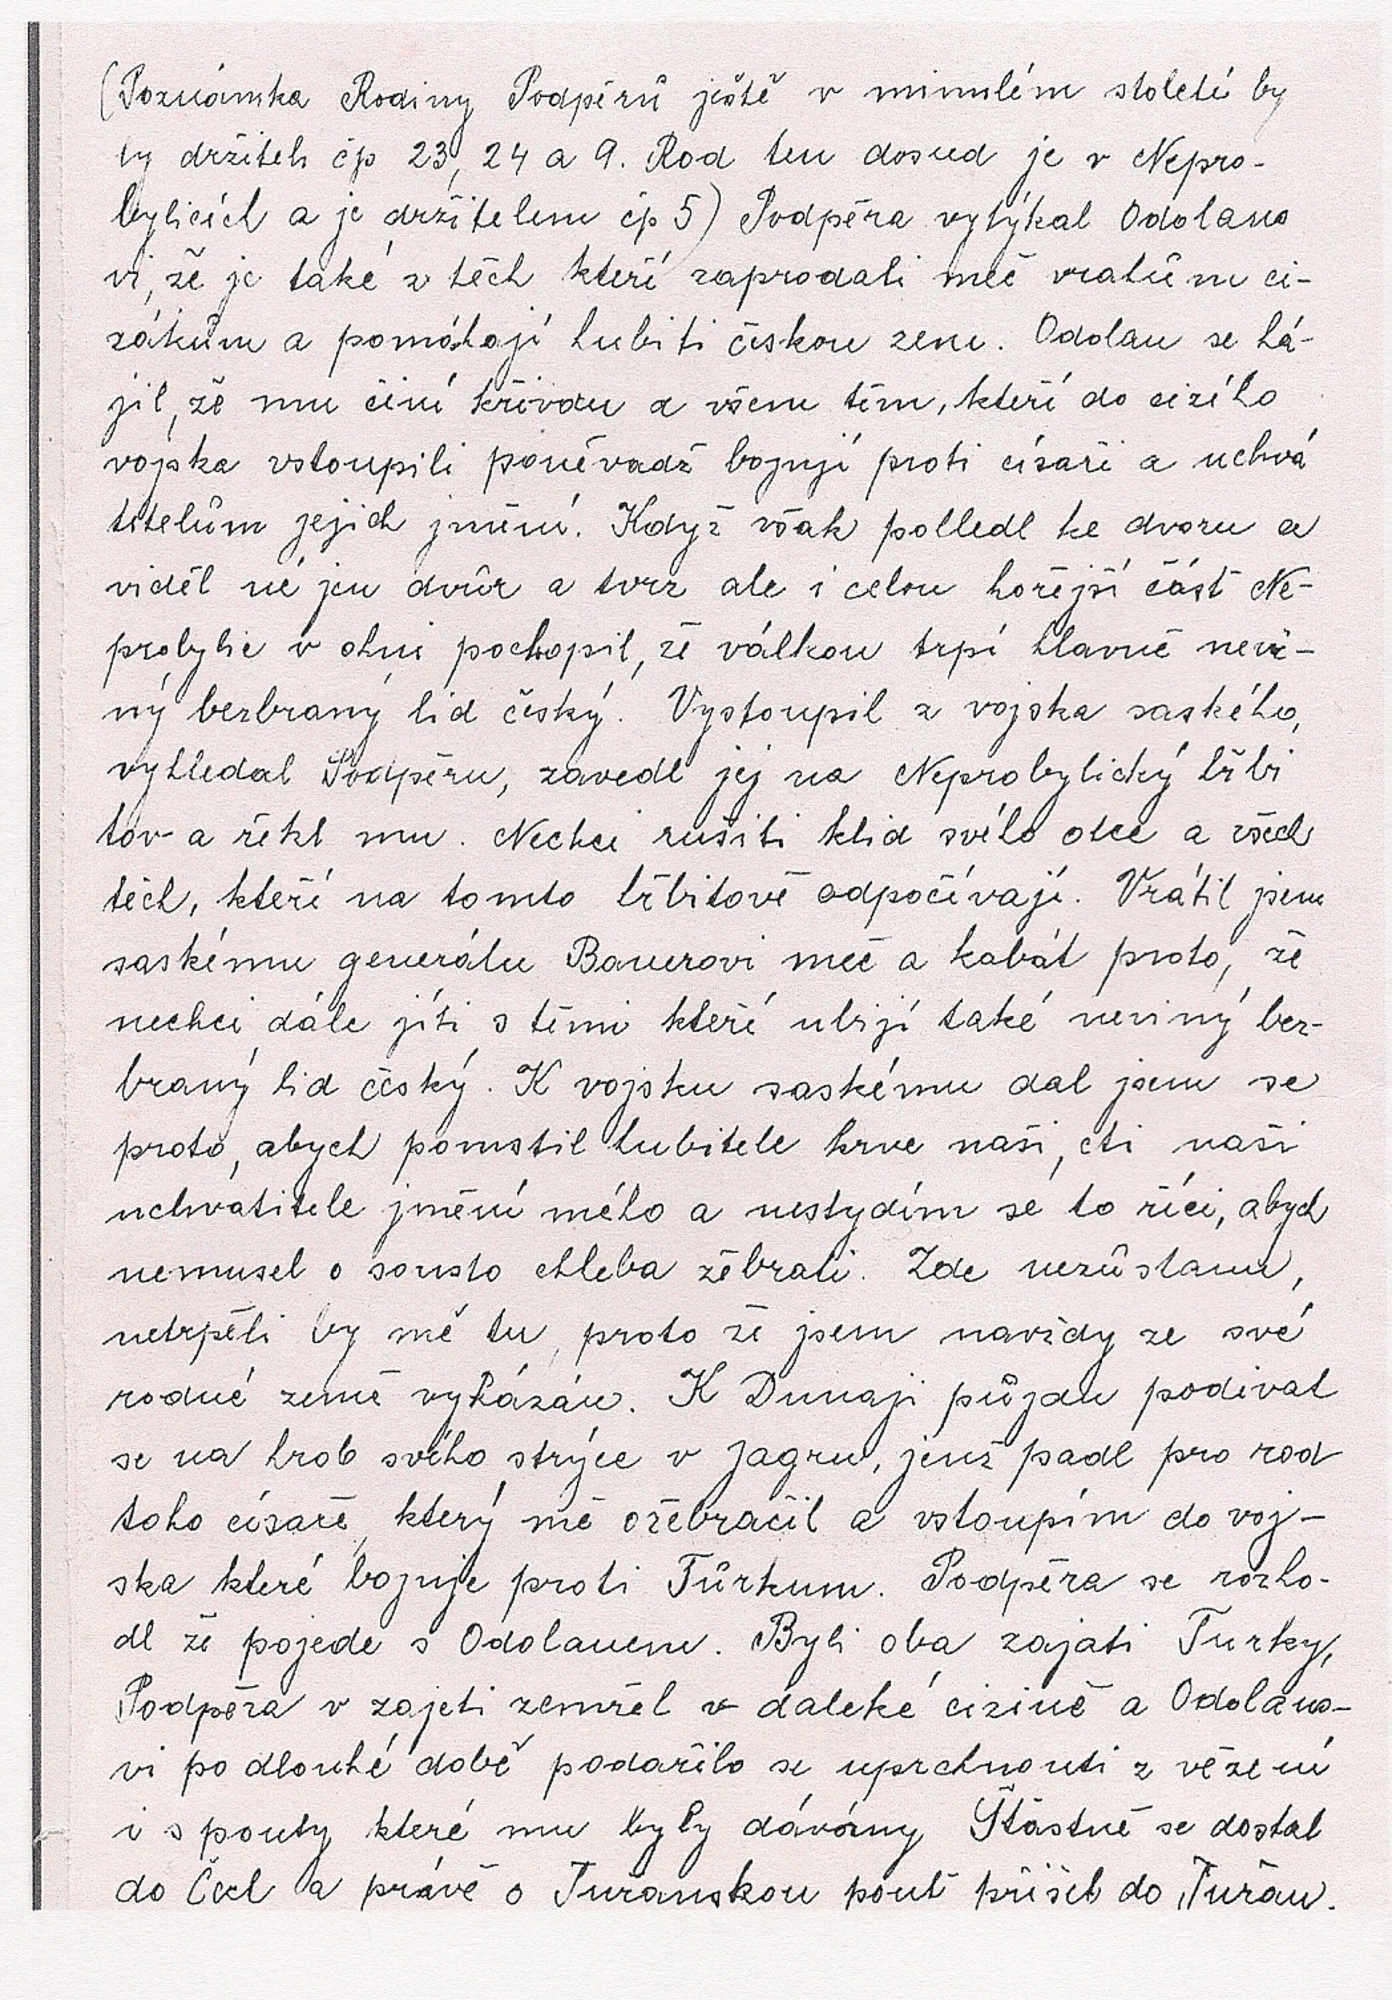 (Poznámka Rodiny Podpěrů ještě v minulém století by
ly držiteli čp 23, 24 a 9. Rod ten dosud je v Nepro-
bylicích a je držitelem čp 5) Podpěra vytýkal Odolano
vi, že je také z těch kteří zaprodali meč vrahům ci-
zákům a pomáhají hubiti českou zemi. Odolan se há-
jil, že mu činí křivdu a všem těm, kteří do cizího
vojska vstoupili poněvadž bojují proti císaři a uchvá
titelům jejich jmění. Když však pohledl ke dvoru a
viděl né jen dvůr a tvrz ale i celou hořejší část Ne-
probylic v ohni pochopil, že válkou trpí hlavně nevi-
ný bezbraný lid český. Vystoupil z vojska saského,
vyhledal Podpěru, zavedl jej na Neprobylický hřbi
tov a řekl mu. Nechci rušiti klid svého otce a všech
těch, kteří na tomto hřbitově odpočívají. Vrátil jsem
saskému generálu Bauerovi meč a kabát proto, že
nechci dále jíti s těmi kteří ubijí také neviný bez-
braný lid český. K vojsku saskému dal jsem se
proto, abych pomstil hubitele krve naši, cti naši
uchvatitele jmění mého a nestydím se to říci, abych
nemusel o sousto chleba žebrati. Zde nezůstanu,
netrpěli by mě tu, proto že jsem navždy ze své
rodné země vykázán. K Dunaji půjdu podivat
se na hrob svého strýce v Jagru, jenž padl pro rod
toho císaře, který mě ožebračil a vstoupím do voj-
ska které bojuje proti Tůrkum. Podpěra se rozho-
dl že pojede s Odolanem. Byli oba zajati Turky,
Podpěra v zajeti zemřel v daleké cizině a Odolano-
vi po dlouhé době podařilo se uprchnouti z vězení
i s pouty které mu byly dávány Štastně se dostal
do Čech a právě o Tuřanskou pouť přišel do Tuřan.